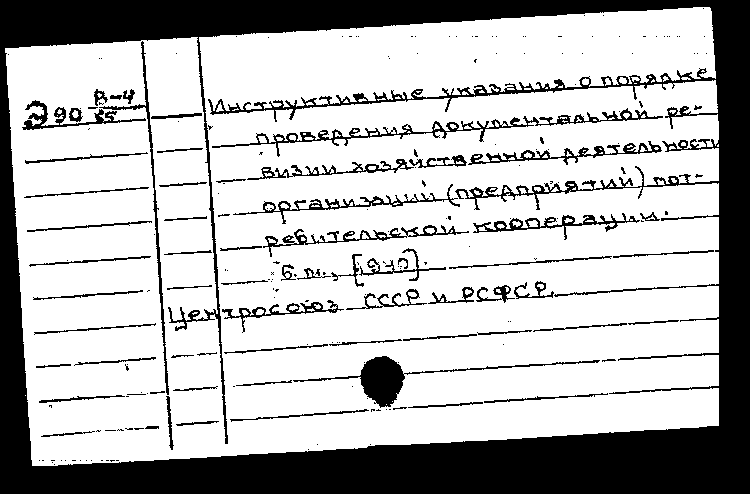 Э 90 В-4
85
Инструктивные указания о порядке
проведения документальной ре-
визии хозяйственной деятельности
организаций (предприятий) пот-
ребительской кооперации.
Б. м., [1940].
Центросоюз СССР и РСФСР.